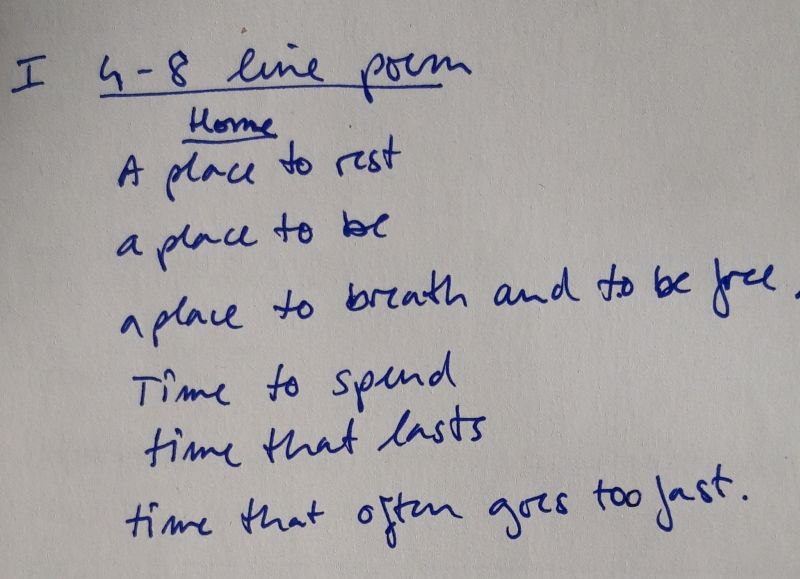 I 4-8 line poem
Home
A place to rest
a place to be
a place to breath and to be free.
Time to spend
time that lasts
time that often goes too fast.